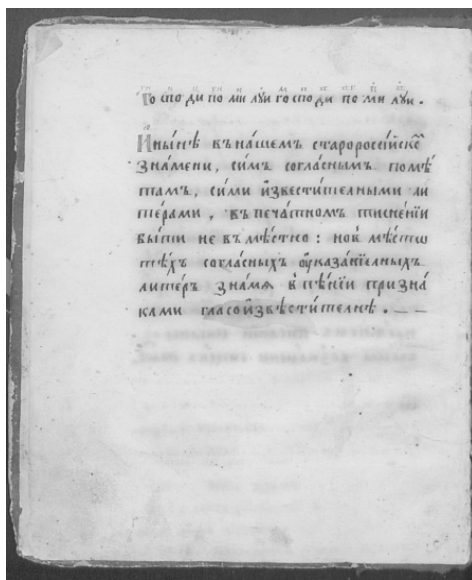 Го спо ди по ми луи го спо ди по ми луи .
И҆ ны́нѣ въ на́шемъ старороссі́йско
зна́мени, си́мъ согла́снымъ помѣ́
тамъ, си́ми и҆звести́телными ли
те́рами , въ печа́тномъ тиснені́и
бы́ти не въмѣ́стно : но в мѣ́сто
тѣ́хъ согла́сныхъ ѹ҆каза́телныхъ
ли́теръ зна́мѧ в пѣ́нїи призна́
ками гласоизвѣсти́телнѣ .